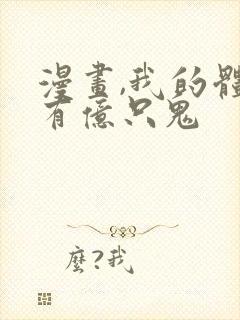 漫畫,我的體
有億只鬼
麼?我